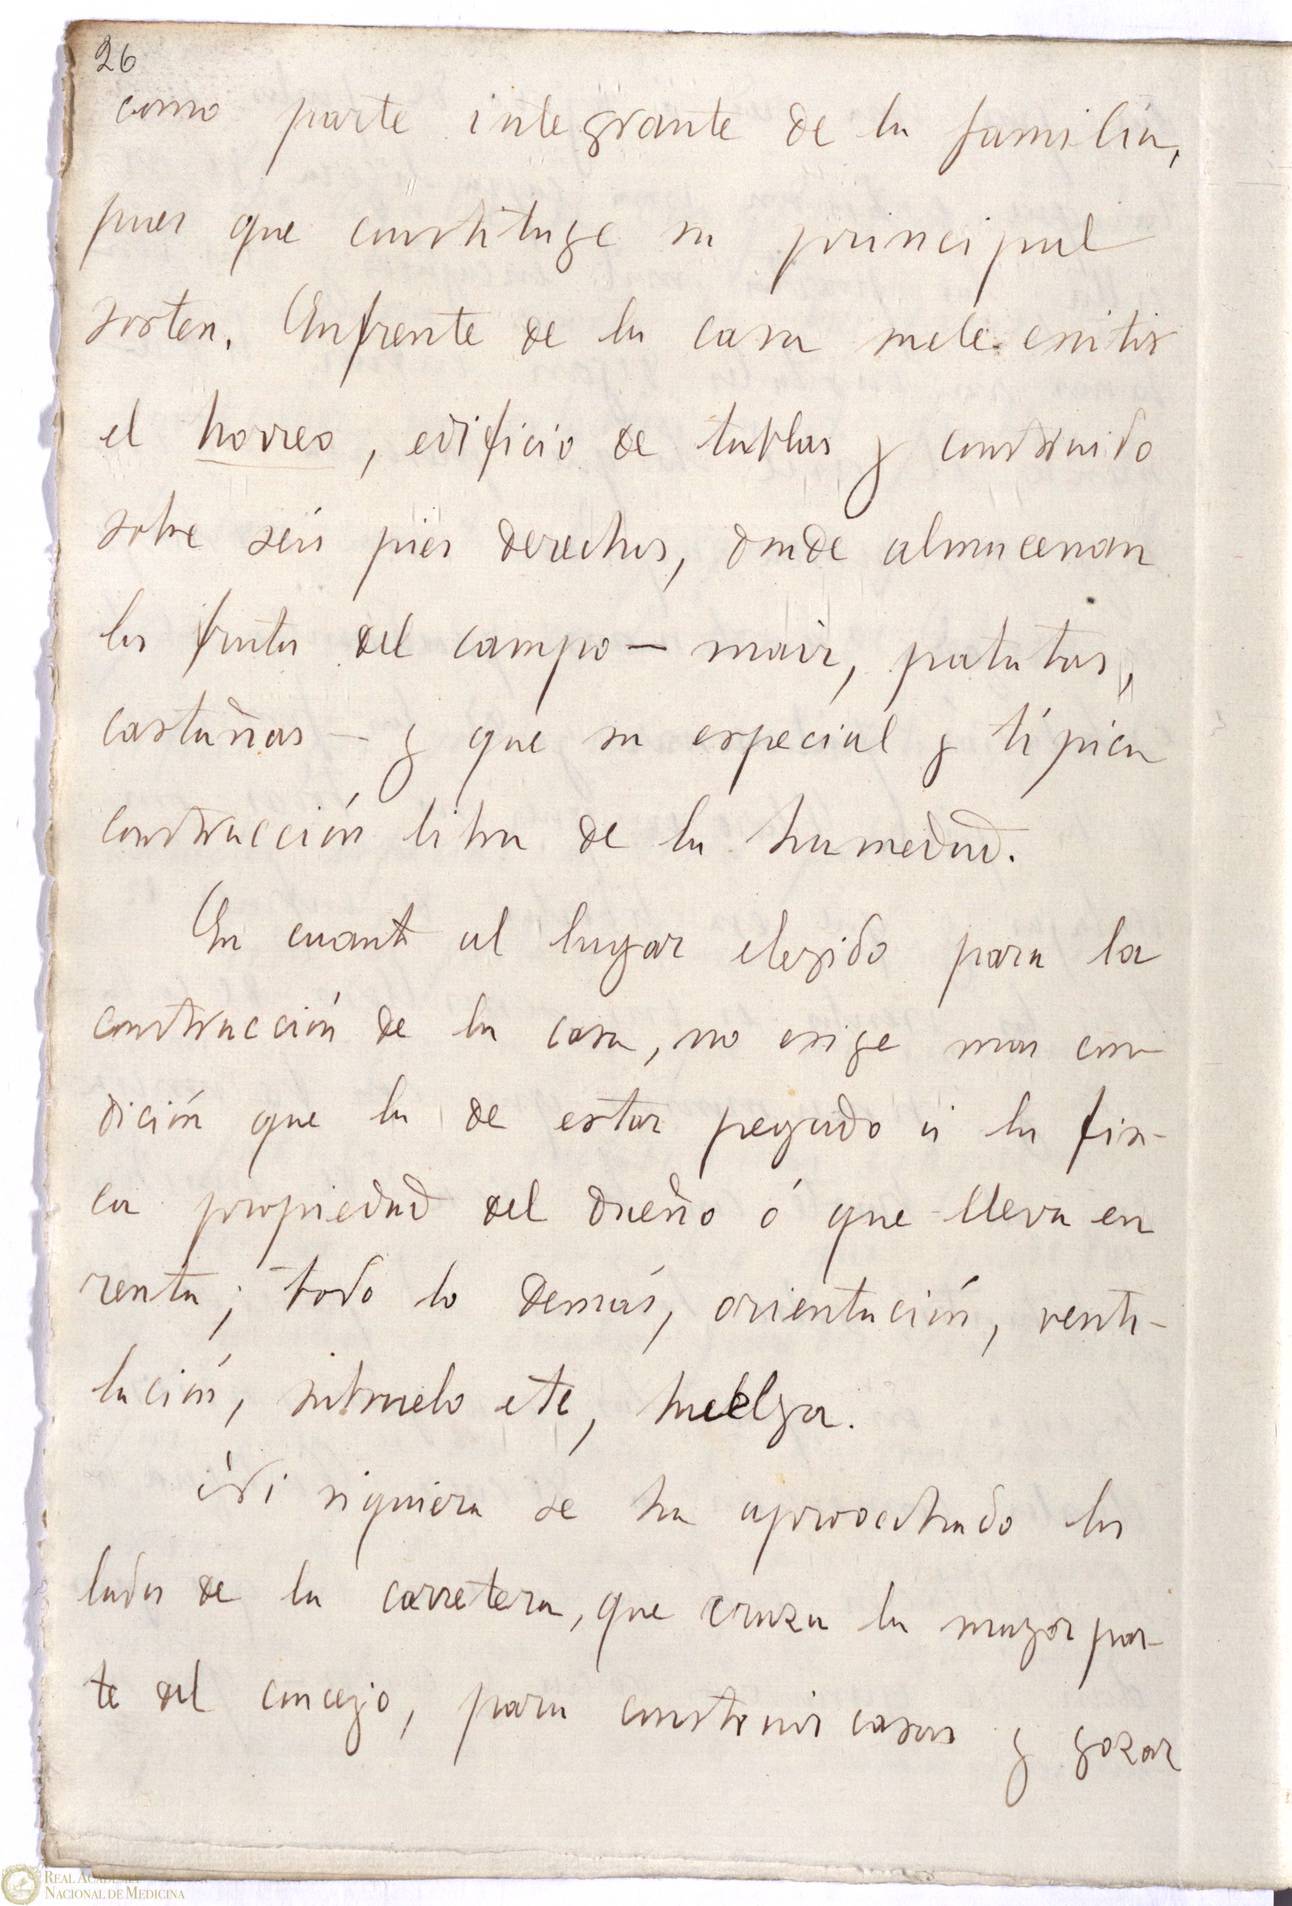 26
como parte integrante de la familia,
pues que constituye su principal
sosten. Enfrente de la casa suele existir
el horreo, edificio de tablas y construido
sobre seis pies derechos, donde almacenan
los frutos del campo — maiz, patatas,
castañas — y que su especial y típica
construcción libra de la humedad.
En cuanto al lugar elegido para la
construcción de la casa, no exige mas con-
dición que la de estar pegado á la fin-
ca propiedad del dueño ó que lleva en
renta; todo lo demás, orientación, venti-
lación, subsuelo etc, huelga.
Ni siquiera se ha aprovechado los
lados de la carretera, que cruza la mayor par-
te del concejo, para construir casas y gozar
REAL ACADEMIA
NACIONAL DE MEDICINA